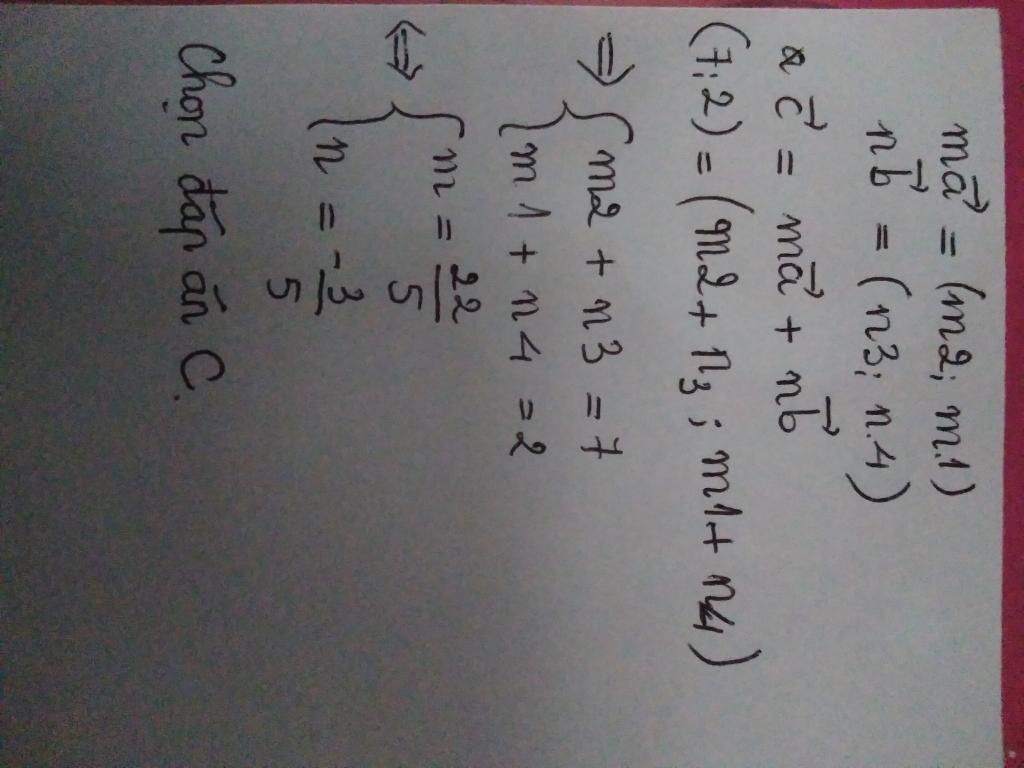 ma⃗ = (m2; m.1)
nb⃗ = (n3; n.4)
* c⃗ = ma⃗ + nb⃗
(7;2) = (m2 + n3 ; m1 + n4)
⇒ { m2 + n3 = 7
{ m1 + n4 = 2
⇔ { m = 22/5
{ n = -3/5
Chọn đáp án C.